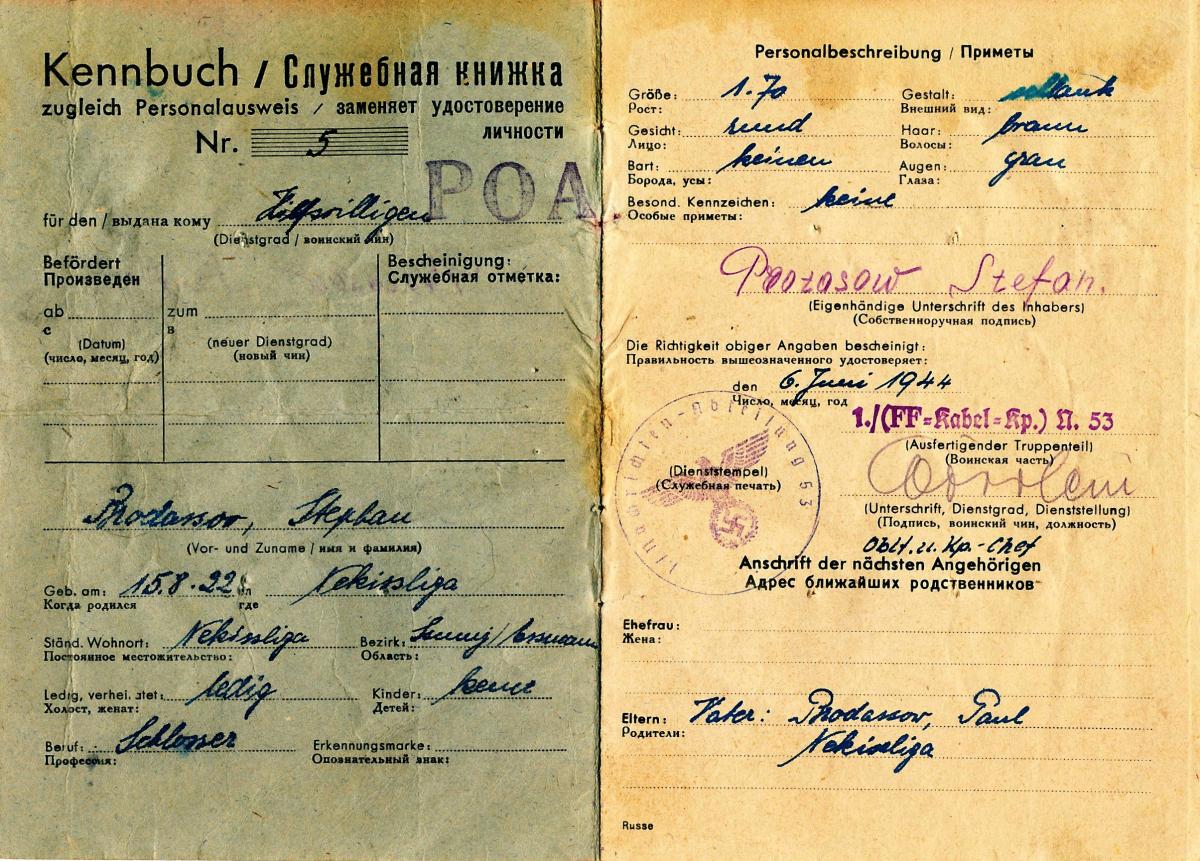 Kennbuch / Служебная книжка
zugleich Personalausweis / заменяет удостоверение
личности
Nr. 5
POA
für den / выдана кому Hilfswilligen
(Dienstgrad / воинский чин)
Befördert
Произведен
Bescheinigung:
Служебная отметка:
ab zum
с в
(Datum) (neuer Dienstgrad)
(число, месяц, год) (новый чин)
Prodassov, Stephan
(Vor- und Zuname / имя и фамилия)
Geb. am: 15.8.22 in Nekissliga
Когда родился где
Ständ. Wohnort: Nekissliga Bezirk:
Постоянное местожительство: Область:
Ledig, verheiratet: ledig Kinder: keine
Холост, женат: Детей:
Beruf: Schlosser Erkennungsmarke:
Профессия: Опознательный знак:
Personalbeschreibung / Приметы
Größe: 1.70 Gestalt: schlank
Рост: Внешний вид:
Gesicht: rund Haar: braun
Лицо: Волосы:
Bart: keinen Augen: grau
Борода, усы: Глаза:
Besond. Kennzeichen: keine
Особые приметы:
Protasow Stefan.
(Eigenhändige Unterschrift des Inhabers)
(Собственноручная подпись)
Die Richtigkeit obiger Angaben bescheinigt:
Правильность вышеозначенного удостоверяет:
den 6. Juni 1944
Число, месяц, год
1./(FF=Kabel=Kp.) N. 53
(Ausfertigender Truppenteil)
(Воинская часть)
1/Nachrichten-Abteilung 53
(Dienststempel)
(Служебная печать)
(Unterschrift, Dienstgrad, Dienststellung)
(Подпись, воинский чин, должность)
Oblt. u. Kp.-Chef
Anschrift der nächsten Angehörigen
Адрес ближайших родственников
Ehefrau:
Жена:
Eltern: Vater: Prodassov, Paul
Родители: Nekissliga
Russe